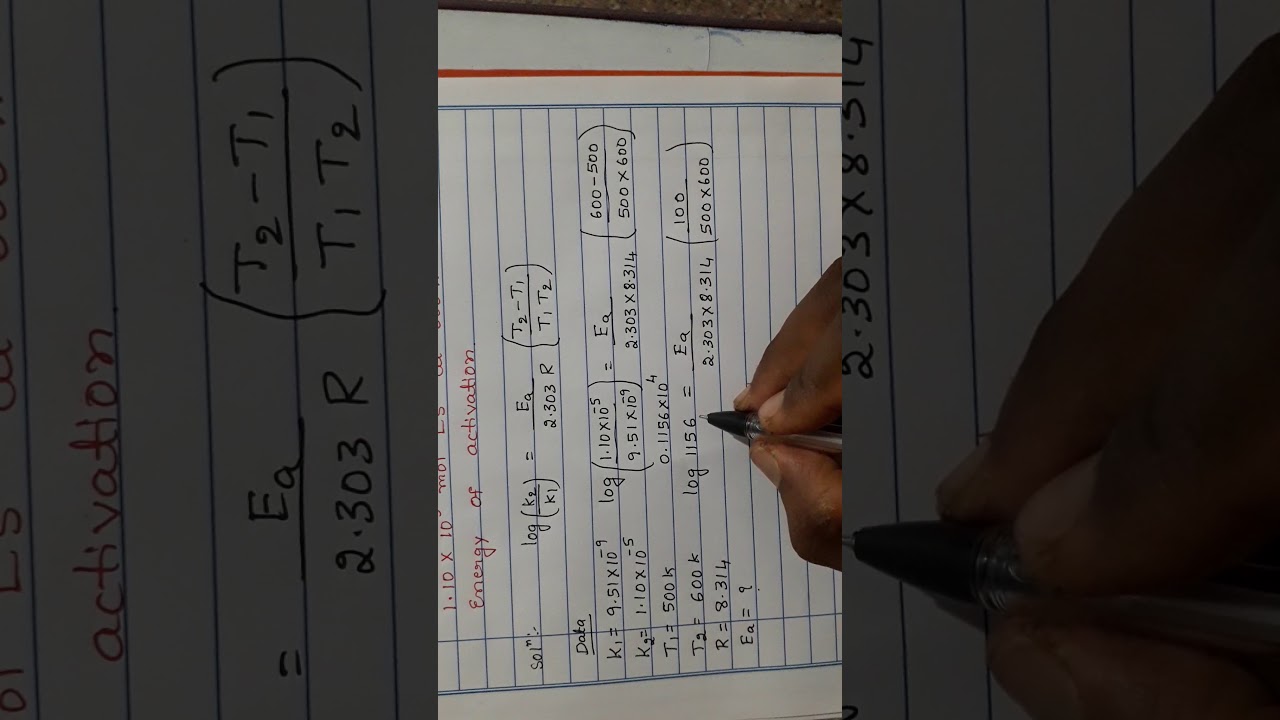 1.10 × 10⁻⁵ mol
Energy of activation
Solⁿ:- log(k₂/k₁) = Ea/2.303 R (T₂-T₁/T₁T₂)
Data
K₁ = 9.51×10⁻⁹
K₂ = 1.10×10⁻⁵
T₁ = 500k
T₂ = 600k
R = 8.314
Ea = ?
log(1.10×10⁻⁵/9.51×10⁻⁹) = Ea/2.303×8.314 (600-500/500×600)
0.1156×10⁴
log 1156 = Ea/2.303×8.314 (100/500×600)
activation
= Ea/2.303 R (T₂-T₁/T₁T₂)
2.303×8.314